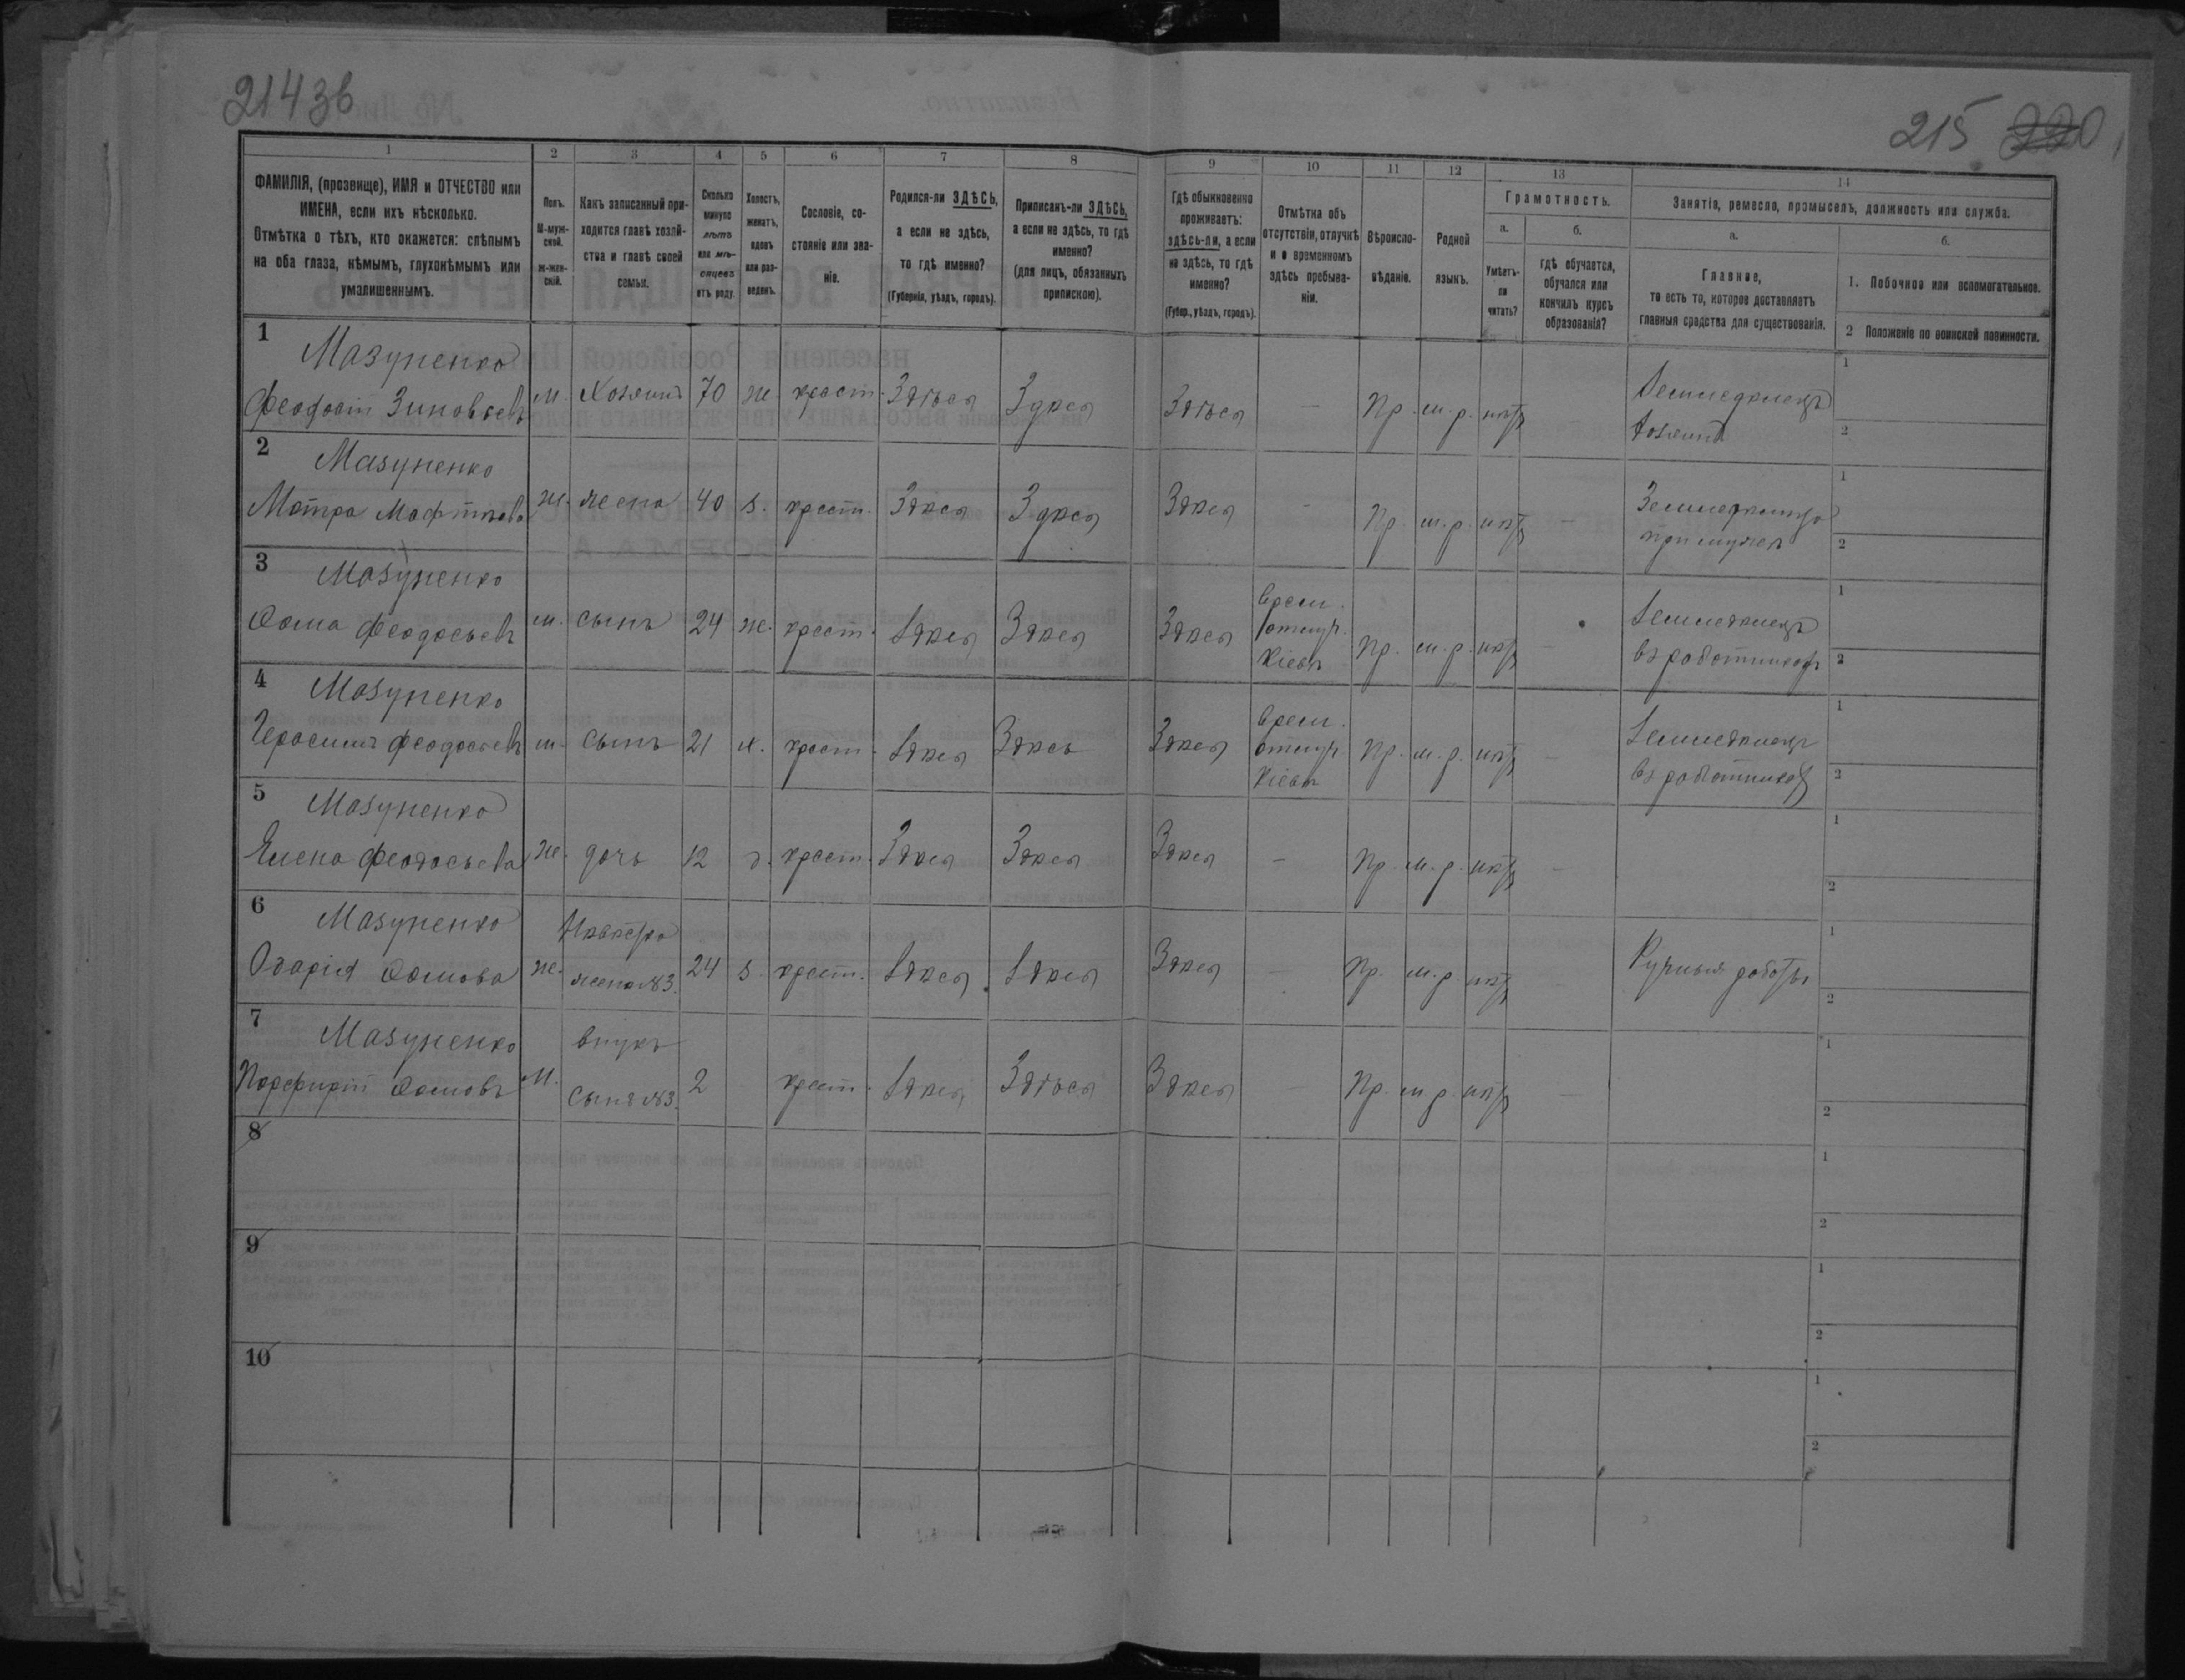 214 зв
215 220
1 2 3 4 5 6 7 8 9 10 11 12 13 14
ФАМИЛІЯ, (прозвище), ИМЯ и ОТЧЕСТВО или
ИМЕНА, если ихъ нѣсколько.
Отмѣтка о тѣхъ, кто окажется: слѣпымъ
на оба глаза, нѣмымъ, глухонѣмымъ или
умалишеннымъ.
Полъ.
М-муж-
ской.
ж-жен-
скій.
Какъ записанный при-
ходится главѣ хозяй-
ства и главѣ своей
семьи.
Сколько
минуло
лѣтъ
или мѣ-
сяцевъ
отъ роду.
Холостъ,
женатъ,
вдовъ
или раз-
веденъ.
Сословіе, со-
стояніе или зва-
ніе.
Родился-ли ЗДѢСЬ,
а если не здѣсь,
то гдѣ именно?
(Губернія, уѣздъ, городъ).
Приписанъ-ли ЗДѢСЬ,
а если не здѣсь, то гдѣ
именно?
(для лицъ, обязанныхъ
припискою).
Гдѣ обыкновенно
проживаетъ:
здѣсь-ли, а если
не здѣсь, то гдѣ
именно?
(Губер., уѣздъ, городъ).
Отмѣтка объ
отсутствіи, отлучкѣ
и о временномъ
здѣсь пребыва-
ніи.
Вѣроиспо-
вѣданіе.
Родной
языкъ.
Грамотность.
а.
Умѣетъ-
ли
читать?
б.
гдѣ обучается,
обучался или
кончилъ курсъ
образованія?
Занятія, ремесло, промыселъ, должность или служба.
а.
Главное,
то есть то, которое доставляетъ
главныя средства для существованія.
б.
1. Побочное или вспомогательное.
2 Положеніе по воинской повинности.
1 Мазуненко
Феодосій Зиновьевъ м. Хозяинъ 70 ж. крест. Здѣсь Здѣсь Здѣсь — Пр. м.р. нѣтъ Земледѣлецъ 1
хозяинъ 2
2 Мазуненко
ж. жена 40 з. крест. Здѣсь Здѣсь Здѣсь - Пр. м.р. нѣтъ — Земледѣлица 1
при мужѣ 2
3 Мазуненко
Ѳома Феодосьевъ м. сынъ 24 ж. крест. Здѣсь Здѣсь Здѣсь Врем. отлуч. Кіевъ Пр. м.р. нѣтъ - Земледѣлецъ 1
въ работникахъ 2
4 Мазуненко
Герасимъ Феодосьевъ м. сынъ 21 х. крест. Здѣсь Здѣсь Здѣсь Врем. отлуч. Кіевъ Пр. м.р. нѣтъ - Земледѣлецъ 1
въ работникахъ 2
5 Мазуненко
Елена Феодосьева ж. дочь 12 д. крест. Здѣсь Здѣсь Здѣсь — Пр. м.р. нѣтъ - 1
2
6 Мазуненко Невѣстка
Ѳомова ж. жена №3. 24 з. крест. Здѣсь Здѣсь Здѣсь - Пр. м.р. нѣтъ Ручныя работы 1
2
7 Мазуненко внукъ
Порфирій Ѳомовъ м. сынъ №3. 2 крест. Здѣсь Здѣсь Здѣсь - Пр. м.р. нѣтъ - 1
2
8 1
2
9 1
2
10 1
2